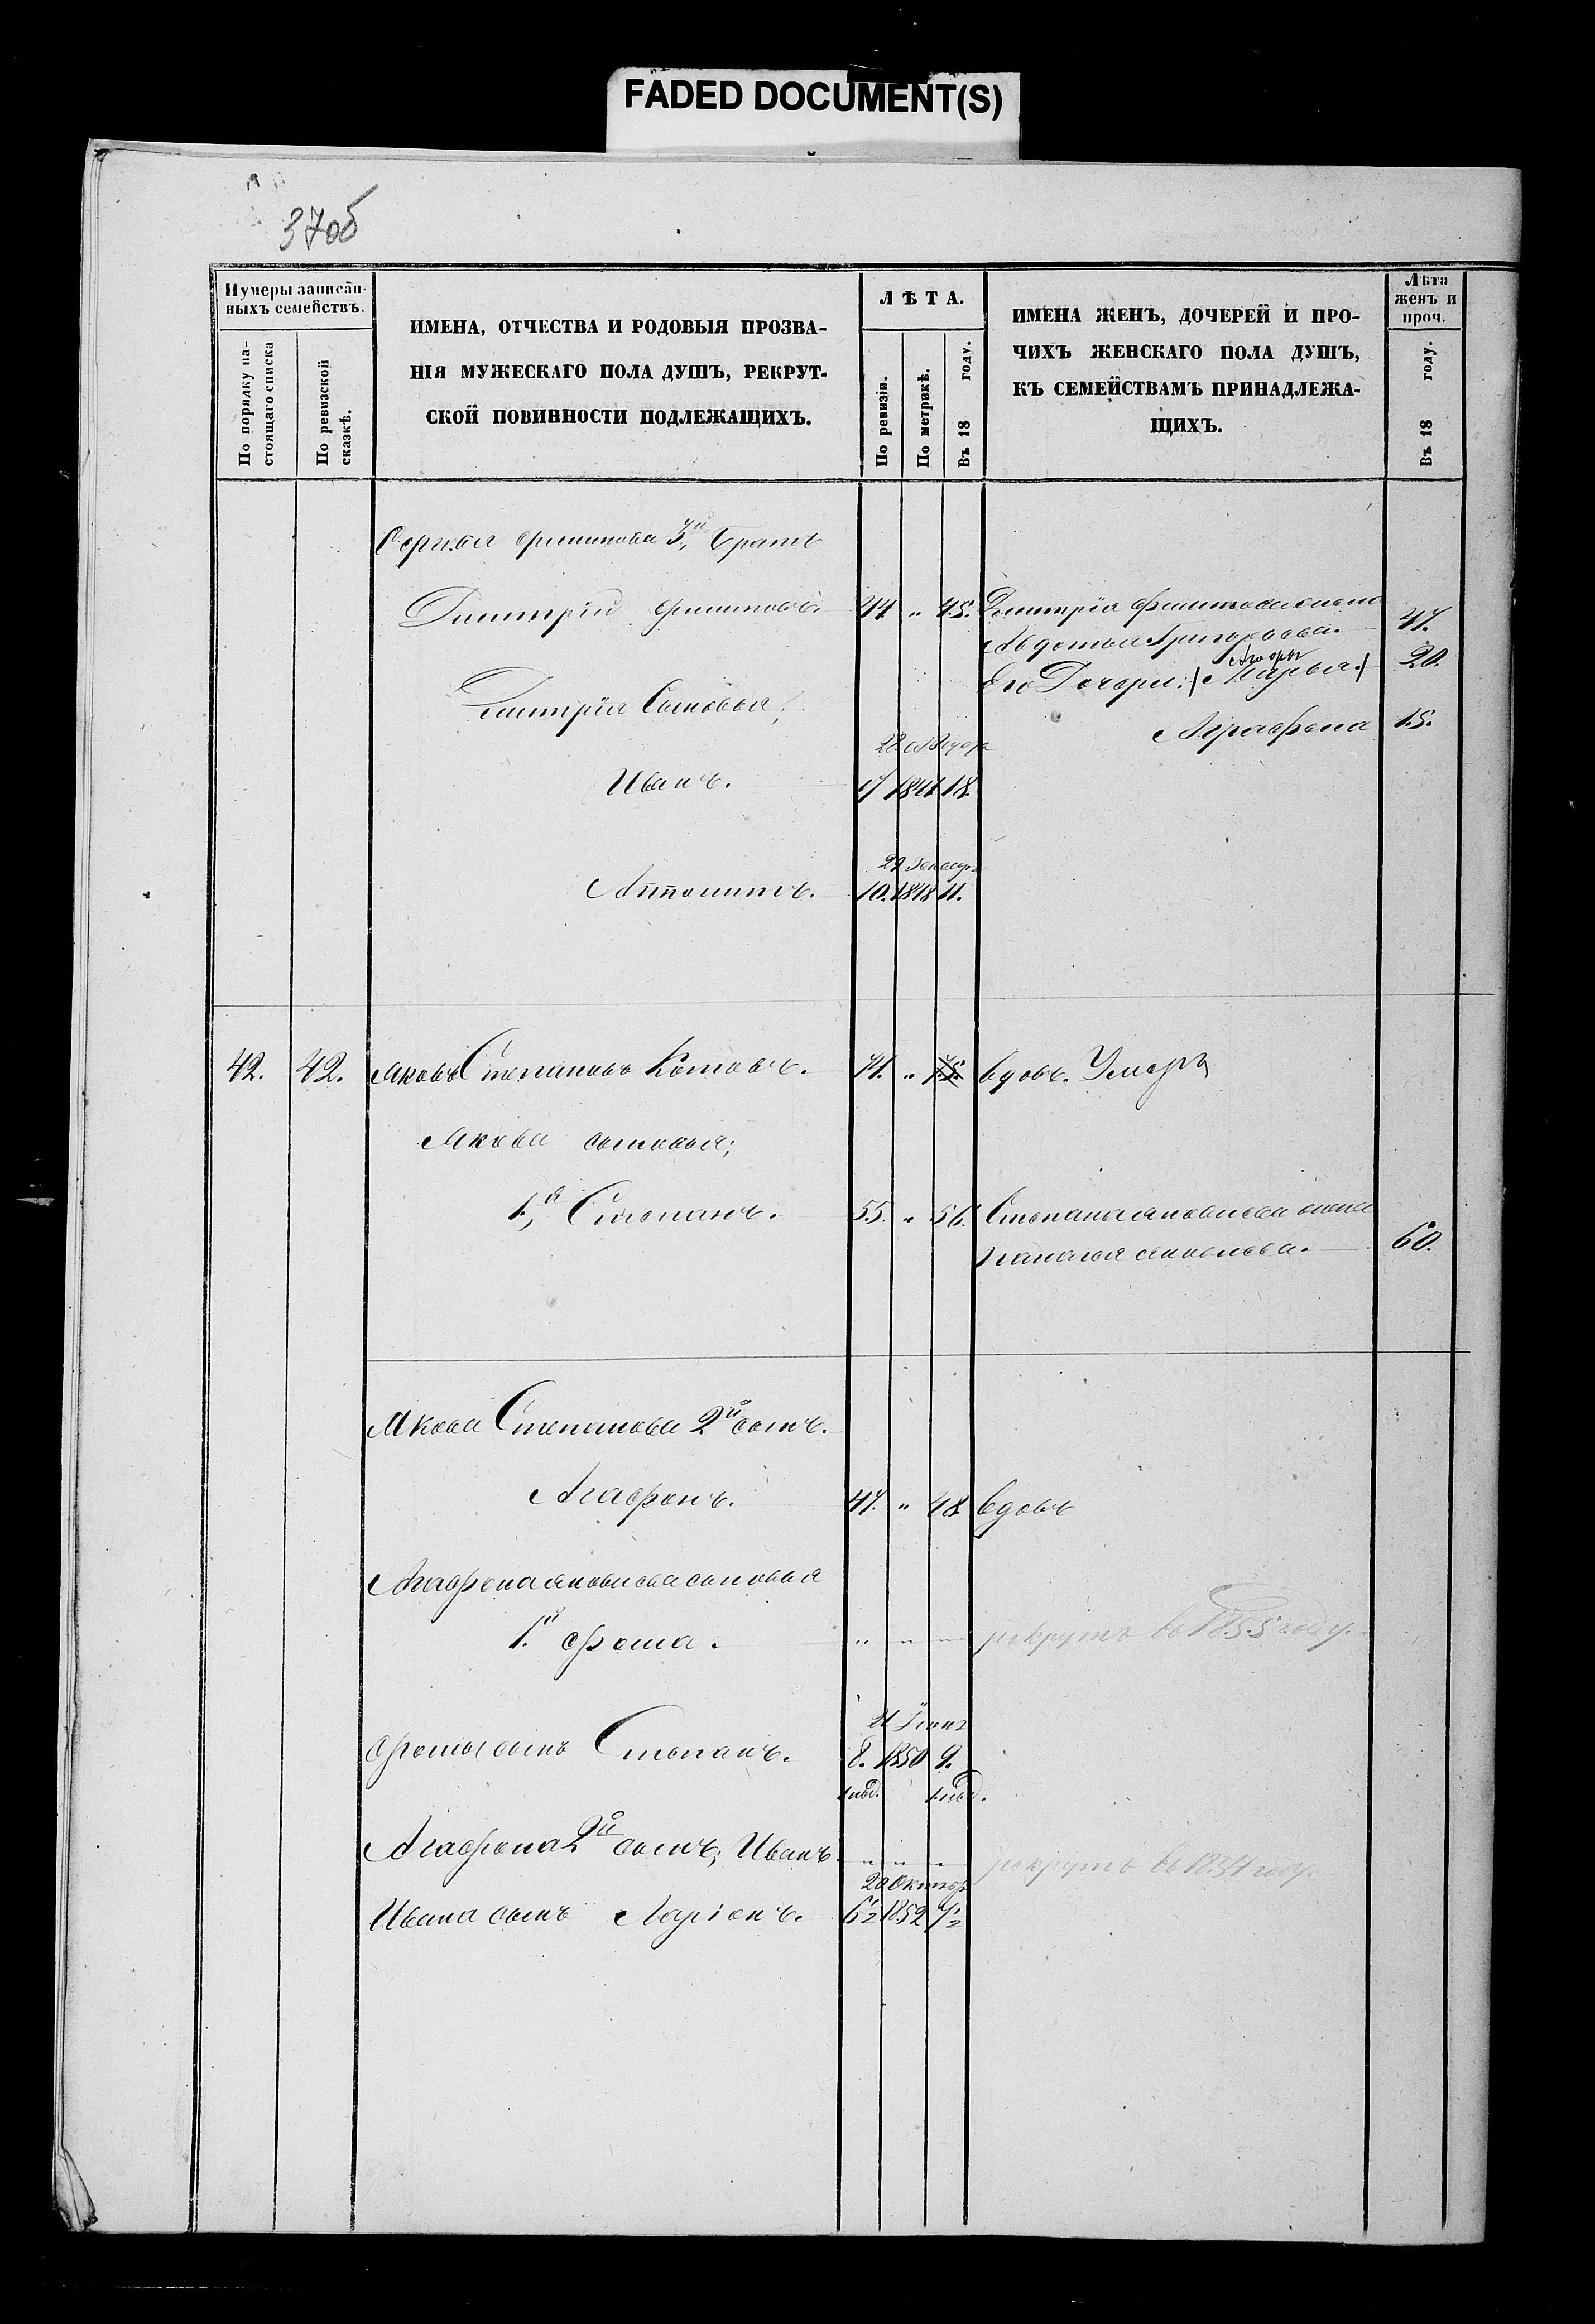 FADED DOCUMENT(S)
37об
Нумеры записан-
ныхъ семействъ.
По порядку на-
стоящаго списка
По ревизской
сказкѣ.
ИМЕНА, ОТЧЕСТВА И РОДОВЫЯ ПРОЗВА-
НІЯ МУЖЕСКАГО ПОЛА ДУШЪ, РЕКРУТ-
СКОЙ ПОВИННОСТИ ПОДЛЕЖАЩИХЪ.
ЛѢТА.
По ревизіи.
По метрикѣ.
Въ 18 году.
ИМЕНА ЖЕНЪ, ДОЧЕРЕЙ И ПРО-
ЧИХЪ ЖЕНСКАГО ПОЛА ДУШЪ,
КЪ СЕМЕЙСТВАМЪ ПРИНАДЛЕЖА-
ЩИХЪ.
Лѣта
женъ и
проч.
Въ 18 году.
3й братъ
Дмитрій 44 " 45. Дмитрія жена
Авдотья Григорьева. 47.
Его Дочери: Марья 20.
Дмитрія Сыновья;
Аграфена 15.
Иванъ. 17 1841 18.
10. 1848 11.
42. 42. Яковъ Степановъ Котовъ. 74. " 75. вдовъ. Умеръ
Якова сыновья;
1й Степанъ. 55. " 56. Степана Яковлева жена
Яковлева. 60.
Якова Степанова 2й сынъ.
Агафонъ. 47. " 48 вдовъ
Агафона Яковлева сыновья
1й Фома. " " — рекрутъ въ 1855 году.
Фомы сынъ Степанъ. 8. 1850 9.
Агафона 2й сынъ; Иванъ " " " рекрутъ въ 1854 году.
20 Октяб
Ивана сынъ Ларіонъ. 6½ 1852 7½